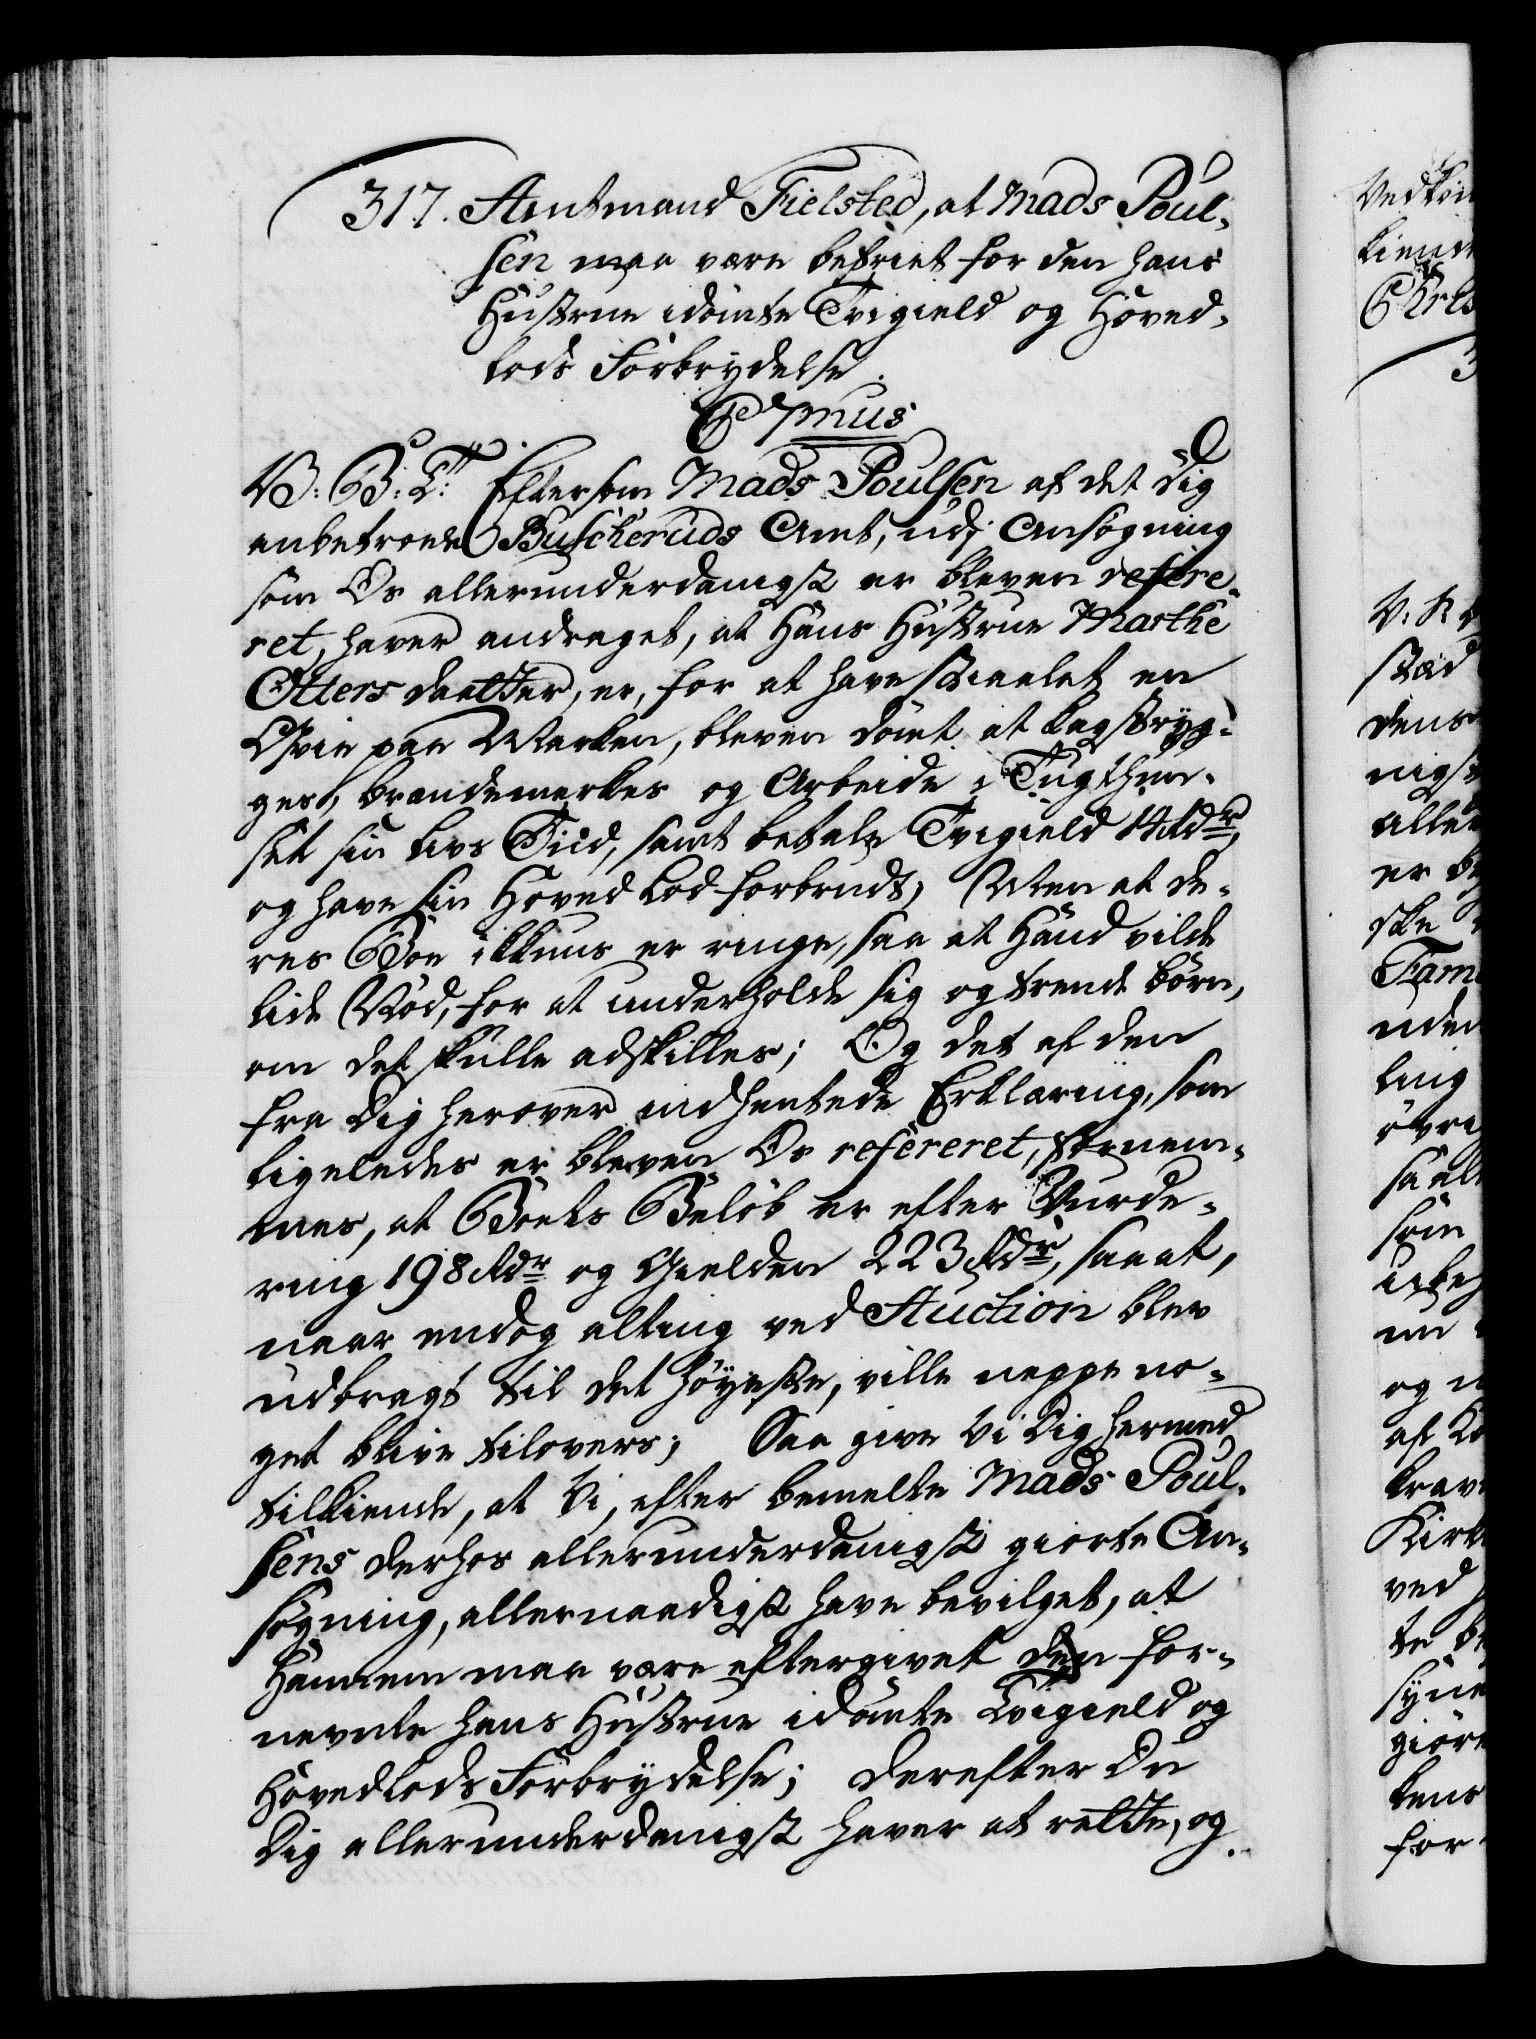 317. Amtmand Fielsted, at Mads Poul-
sen maa være befriet for den hans
Hustrue idømte Tvigield og Hoved-
lods Forbrydelse.
C 7mus
V: G: T: Eftersom Mads Poulsen af det dig
anbetroede Buscheruds Amt, udj Ansøgning
som Os allerunderdanigst er bleven refere-
ret, haver andraget, at Hans Hustrue Marthe
Otters daatter, er, for at have stiaalet en
Qvie paa Marken, bleven dømt at kagstryg-
ges, brændemærkes og Arbeide i Tugthuu-
set sin Livs Tiid, samt betale Tvigield 14 Rdr,
og have sin Hoved Lod forbrudt; Men at de-
res Boe ikkuns er ringe, saa at Hand vilde
lide Nød, for at underholde sig og trende børn,
om det skulle adskilles; Og det af den
fra dig herover indhentede Erklæring, som
ligeledes er bleven Os refereret, fornem-
mes, at Boets Beløb er efter Vurde-
ring 198 Rdr og Gielden 223 Rdr, saa at,
naar endog alting ved Auction blev
udbragt til det høyeste, ville neppe no-
get blive tilovers; Saa give Vi Dig hermed
tilkiende, at Vi, efter bemelte Mads Poul-
sens derhos allerunderdanigst giorte An-
søgning, allernaadigst have bevilget, at
Hannem maa være eftergivet den for-
nevnte hans Hustrue idømte Tvigield og
Hovedlods Forbrydelse; Derefter Du
Dig allerunderdanigst haver at rette, og